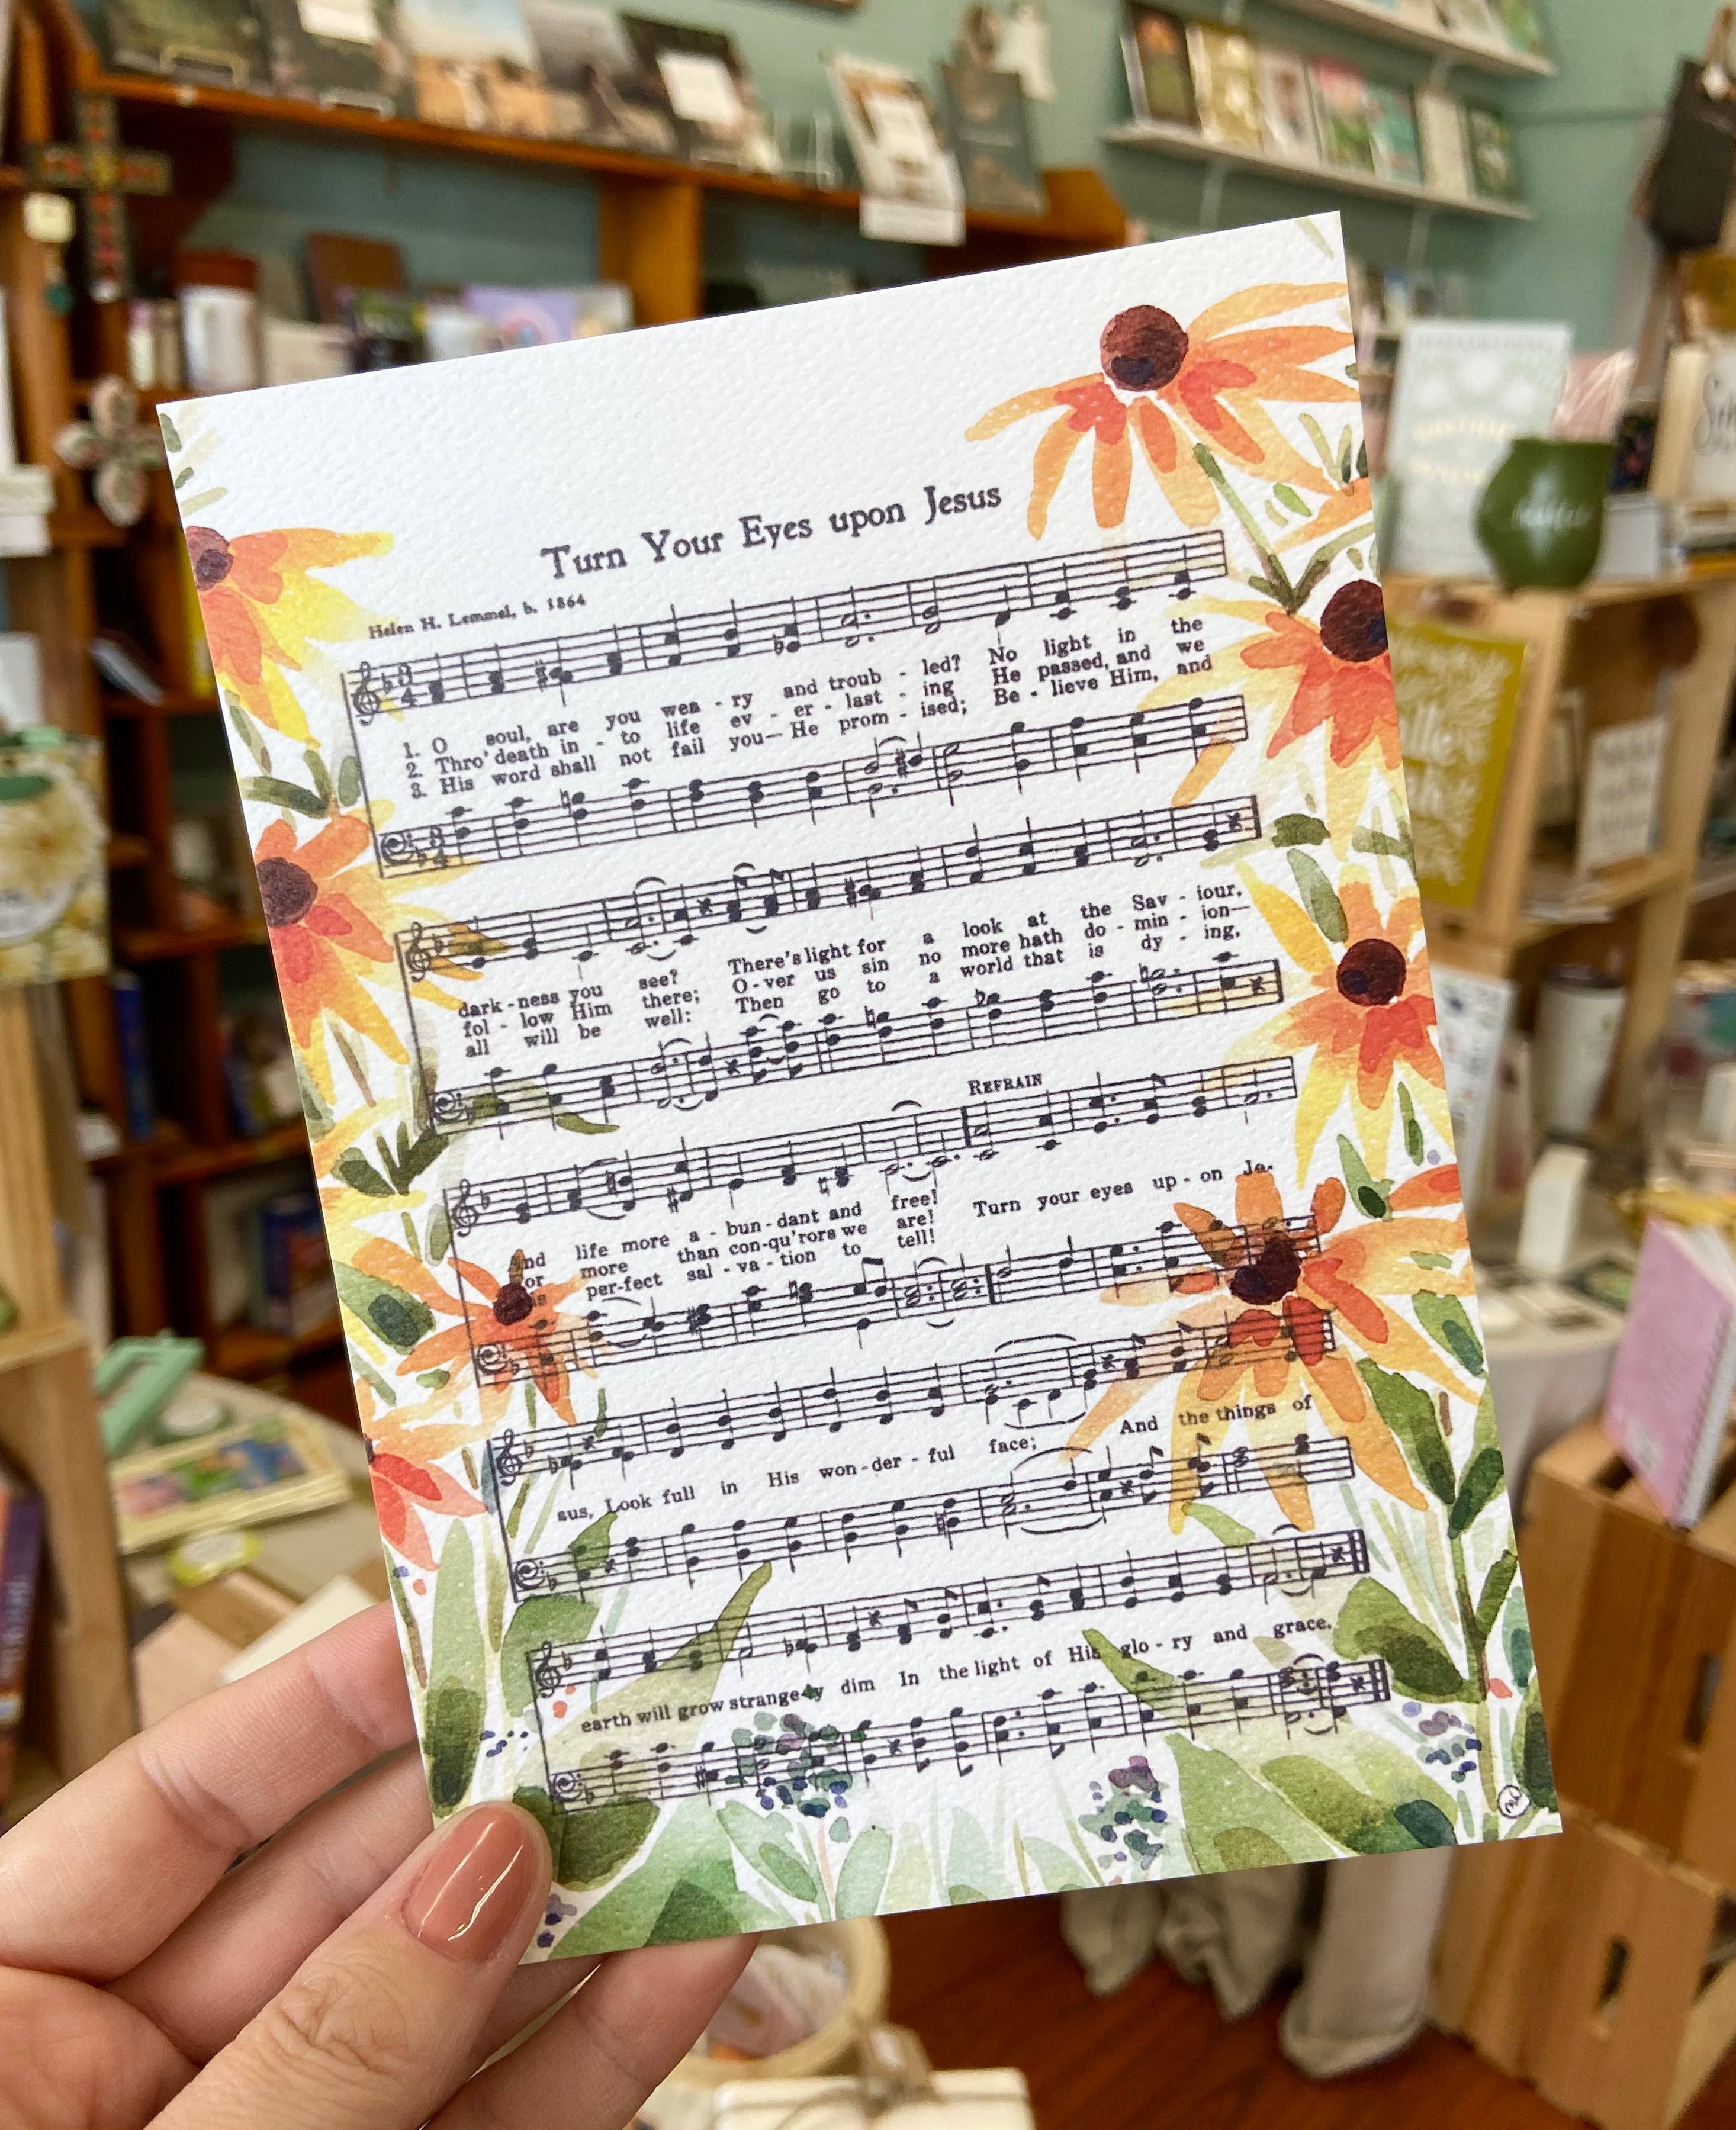 Turn Your Eyes upon Jesus
Helen H. Lemmel, b. 1864
1. O soul, are you wea - ry and troub - led? No light in the
2. Thro' death in - to life ev - er - last - ing He passed, and we
3. His word shall not fail you— He prom - ised; Be - lieve Him, and
dark - ness you see? There's light for a look at the Sav - iour,
fol - low Him there; O - ver us sin no more hath do - min - ion—
all will be well: Then go to a world that is dy - ing,
REFRAIN
And life more a - bun - dant and free! Turn your eyes up - on Je-
or more than con - qu'rors we are!
is per - fect sal - va - tion to tell!
sus, Look full in His won - der - ful face; And the things of
earth will grow strange - ly dim In the light of His glo - ry and grace.